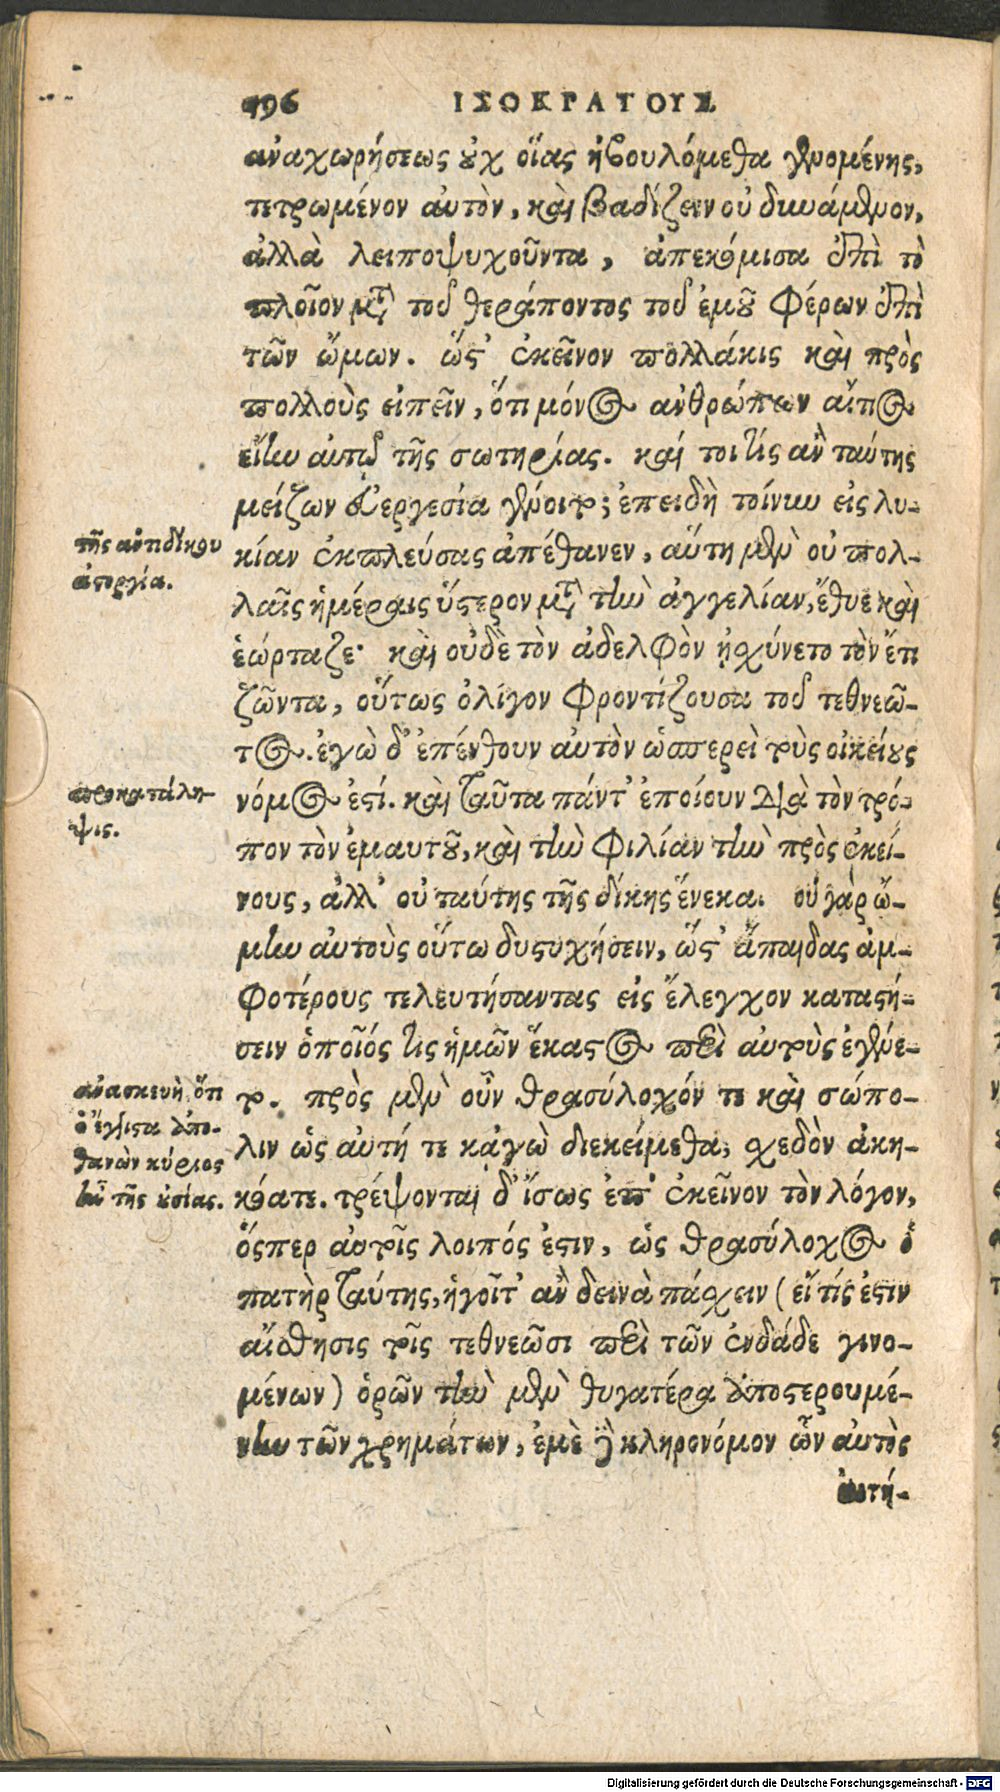 496 ΙΣΟΚΡΑΤΟΥΣ
ἀναχωρήσεως οὐχ οἵας ἠβουλόμεθα γενομένης,
τετρωμένον αὐτὸν, καὶ βαδίζειν οὐ δυνάμενον,
ἀλλὰ λειποψυχοῦντα, ἀπεκόμισα ἐπὶ τὸ
πλοῖον μετὰ τοῦ θεράποντος τοῦ ἐμοῦ φέρων ἐπὶ
τῶν ὤμων. ὥστ' ἐκεῖνον πολλάκις καὶ πρὸς
πολλοὺς εἰπεῖν, ὅτι μόνος ἀνθρώπων αἴτιος
εἴην αὐτῷ τῆς σωτηρίας. καί τοι τίς ἂν ταύτης
μείζων εὐεργεσία γένοιτο; ἐπειδὴ τοίνυν εἰς λυ-
τῆς ἀντιδίκου
κίαν ἐκπλεύσας ἀπέθανεν, αὕτη μὲν οὐ πολ-
ἀστοργία.
λαῖς ἡμέραις ὕστερον μετὰ τὴν ἀγγελίαν, ἔθυε καὶ
ἑώρταζε· καὶ οὐδὲ τὸν ἀδελφὸν ᾐσχύνετο τὸν ἔτι
ζῶντα, οὕτως ὀλίγον φροντίζουσα τοῦ τεθνεῶ-
τος. ἐγὼ δ' ἐπένθουν αὐτὸν ὡσπερεὶ τοὺς οἰκείους
προκατάλη-
νόμος ἐστί. καὶ ταῦτα πάντ' ἐποίουν διὰ τὸν τρό-
ψις.
πον τὸν ἐμαυτοῦ, καὶ τὴν φιλίαν τὴν πρὸς ἐκεί-
νους, ἀλλ' οὐ ταύτης τῆς δίκης ἕνεκα. οὐ γὰρ ᾤ-
μην αὐτοὺς οὕτω δυστυχήσειν, ὥστ' ἄπαιδας ἀμ-
φοτέρους τελευτήσαντας εἰς ἔλεγχον καταστή-
σειν ὁποῖός τις ἡμῶν ἕκαστος περὶ αὐτοὺς ἐγένε-
ἀνασκευὴ ὅτι
το. πρὸς μὲν οὖν θρασύλοχόν τε καὶ σώπο-
ὁ ἔγγιστα ἀπο-
θανὼν κύριος
λιν ὡς αὐτή τε κἀγὼ διεκείμεθα, σχεδὸν ἀκη-
ἦν τῆς οὐσίας.
κόατε. τρέψονται δ' ἴσως ἐπ' ἐκεῖνον τὸν λόγον,
ὅσπερ αὐτοῖς λοιπός ἐστιν, ὡς θρασύλοχος ὁ
πατὴρ ταύτης, ἡγοῖτ' ἂν δεινὰ πάσχειν (εἴ τίς ἐστιν
αἴσθησις τοῖς τεθνεῶσι περὶ τῶν ἐνθάδε γινο-
μένων) ὁρῶν τὴν μὲν θυγατέρα ἀποστερουμέ-
νην τῶν χρημάτων, ἐμὲ δὲ κληρονόμον ὧν αὐτὸς
Digitalisierung gefördert durch die Deutsche Forschungsgemeinschaft - DFG